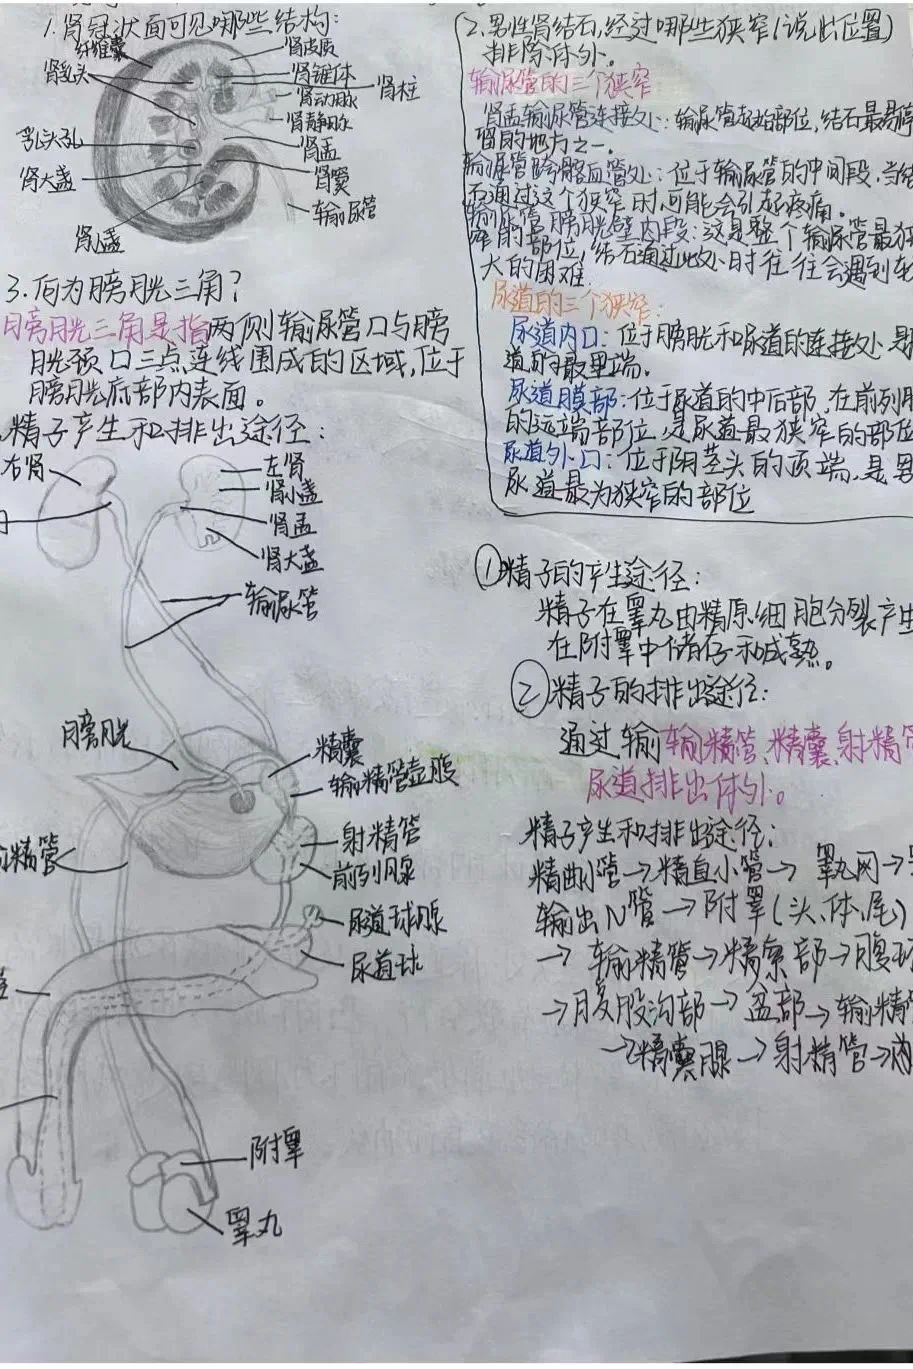 1.肾冠状面可见哪些结构:
纤维囊
肾乳头
乳头孔
肾大盏
肾小盏
肾皮质
肾锥体
肾柱
肾动脉
肾静脉
肾盂
肾窦
输尿管
2.男性肾结石,经过哪些狭窄(说出位置)
排除体外。
输尿管的三个狭窄
肾盂输尿管连接处:输尿管起始部位,结石最易停
留的地方之一。
输尿管跨髂血管处:位于输尿管的中间段,当结
石通过这个狭窄时,可能会引起疼痛。
输尿管膀胱壁内段:这是整个输尿管最狭
的部位,结石通过此处时往往会遇到较
大的困难
尿道的三个狭窄:
尿道内口:位于膀胱和尿道的连接处是
道的最里端。
尿道膜部:位于尿道的中后部,在前列腺
的远端部位,是尿道最狭窄的部位
尿道外口:位于阴茎头的顶端,是男
尿道最为狭窄的部位
3.何为膀胱三角?
膀胱三角是指两侧输尿管口与膀
胱颈口三点连线围成的区域,位于
膀胱底部内表面。
精子产生和排出途径:
右肾
左肾
肾小盏
肾盂
肾大盏
输尿管
膀胱
精囊
输精管壶腹
射精管
前列腺
尿道球腺
尿道球
精管
附睾
睾丸
①精子的产生途径:
精子在睾丸由精原细胞分裂产生
在附睾中储存和成熟。
②精子的排出途径:
通过输输精管、精囊、射精管
尿道排出体外。
精子产生和排出途径:
精曲小管→精直小管→睾丸网→
输出小管→附睾(头、体、尾)
→输精管→精索部→腹
→腹股沟部→盆部→输精
→精囊腺→射精管→